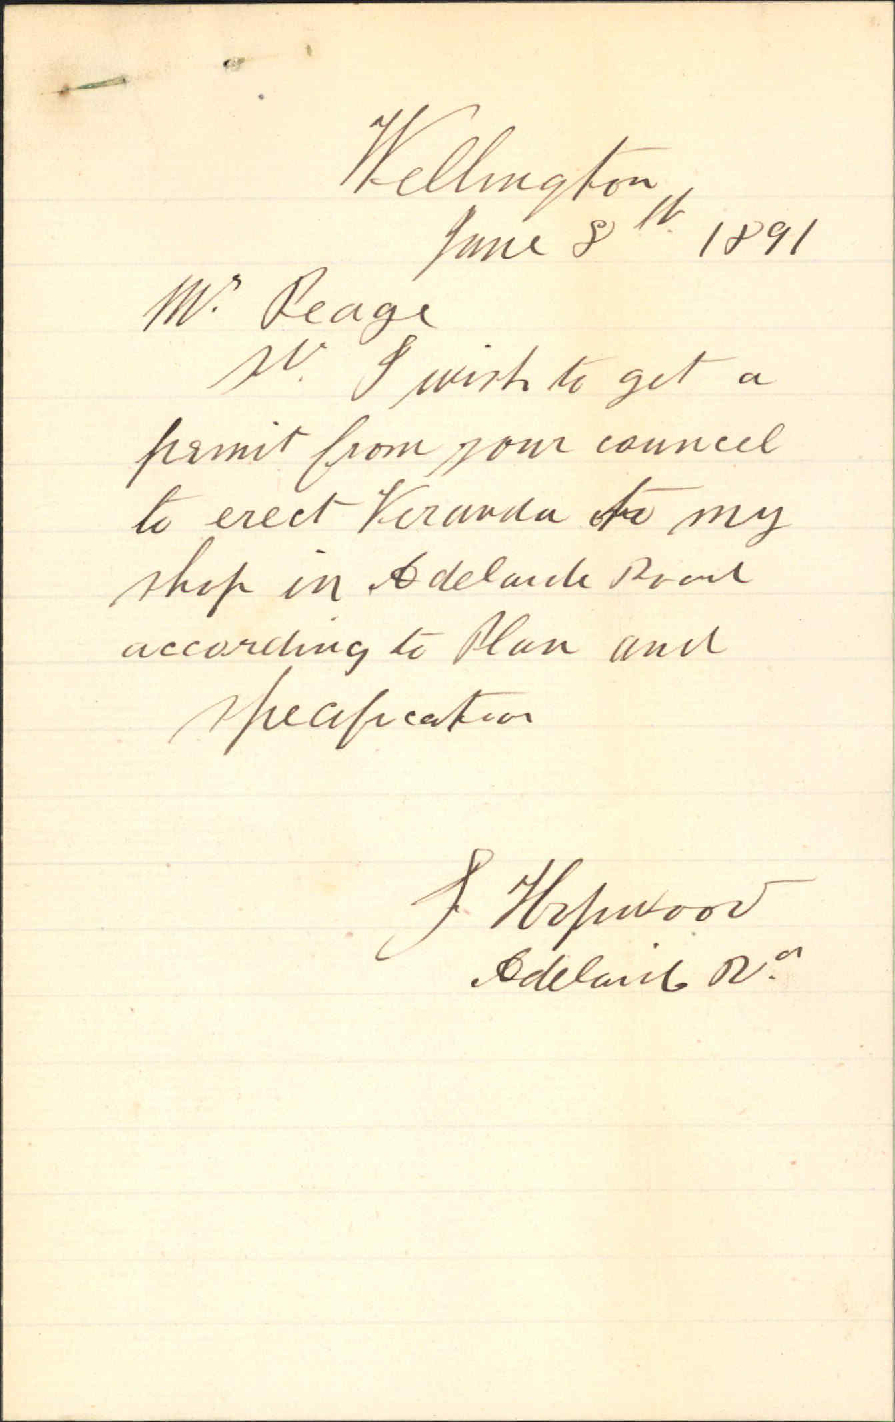 Wellington
June 8th 1891
Mr. Peage
Sir. I wish to get a
permit from your councel
to erect Veranda to my
shop in Adelaide Road
according to Plan and
specification
J Hopwood
Adelaide Rd.